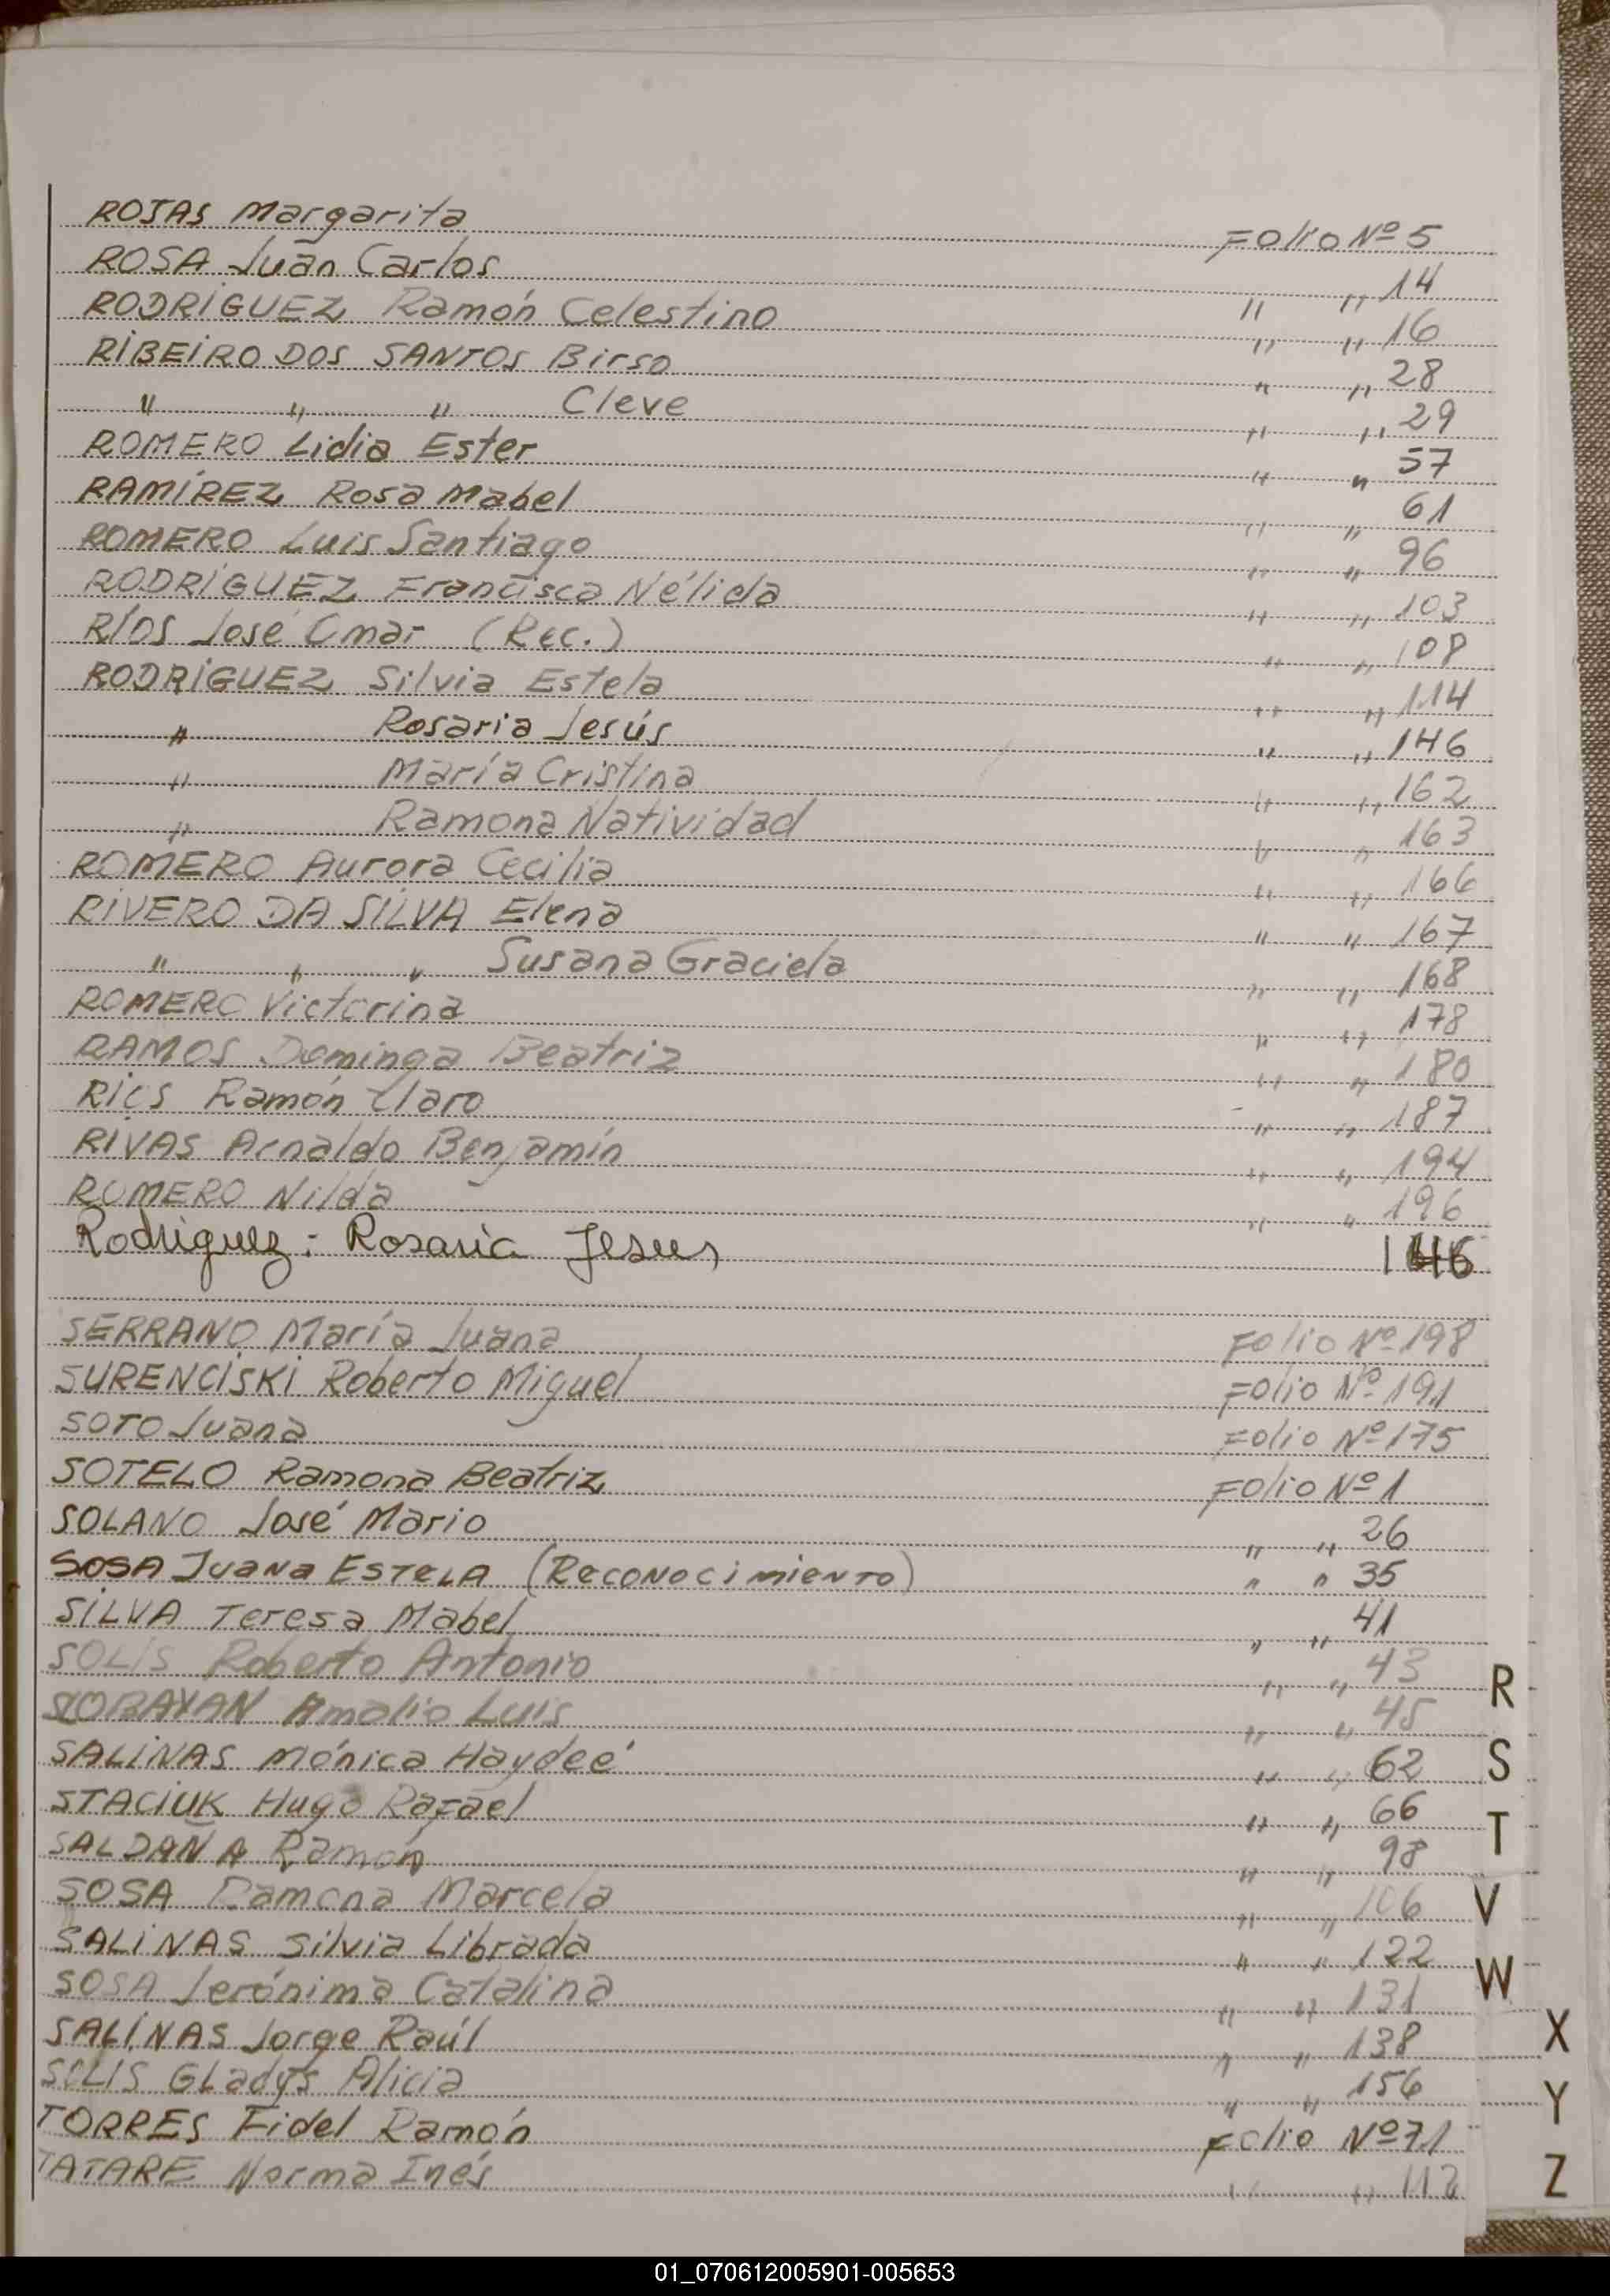 ROJAS Margarita Folio Nº 5
ROSA Juan Carlos " " 14
RODRÍGUEZ Ramón Celestino " " 16
RIBEIRO DOS SANTOS Birso " " 28
" " " Cleve " " 29
ROMERO Lidia Ester " " 57
RAMÍREZ Rosa Mabel " " 61
ROMERO Luis Santiago " " 96
RODRÍGUEZ Francisca Nélida " " 103
RÍOS José Omar (Rec.) " " 108
RODRÍGUEZ Silvia Estela " " 114
" Rosaria Jesús " " 146
" María Cristina " " 162
" Ramona Natividad " " 163
ROMERO Aurora Cecilia " " 166
RIVERO DA SILVA Elena " " 167
" " " Susana Graciela " " 168
ROMERO Victorina " " 178
RAMOS Dominga Beatriz " " 180
RIOS Ramón Claro " " 187
RIVAS Arnaldo Benjamín " " 194
ROMERO Nilda " " 196
Rodriguez: Rosaria Jesus 146
SERRANO María Juana Folio Nº 198
SURENCISKI Roberto Miguel Folio Nº 191
SOTO Juana Folio Nº 175
SOTELO Ramona Beatriz Folio Nº 1
SOLANO José Mario " " 26
SOSA Juana ESTELA (Reconocimiento) " " 35
SILVA Teresa Mabel " " 41
SOLIS Roberto Antonio " " 43
Amalio Luis " " 45
SALINAS Mónica Haydeé " " 62
STACIUK Hugo Rafael " " 66
SALDAÑA Ramón " " 98
SOSA Ramona Marcela " " 106
SALINAS Silvia Librada " " 122
SOSA Jerónima Catalina " " 131
SALINAS Jorge Raúl " " 138
SOLIS Gladys Alicia " " 156
TORRES Fidel Ramón Folio Nº 71
TATARE Norma Inés " "
R
S
T
V
W
X
Y
Z
01_070612005901-005653